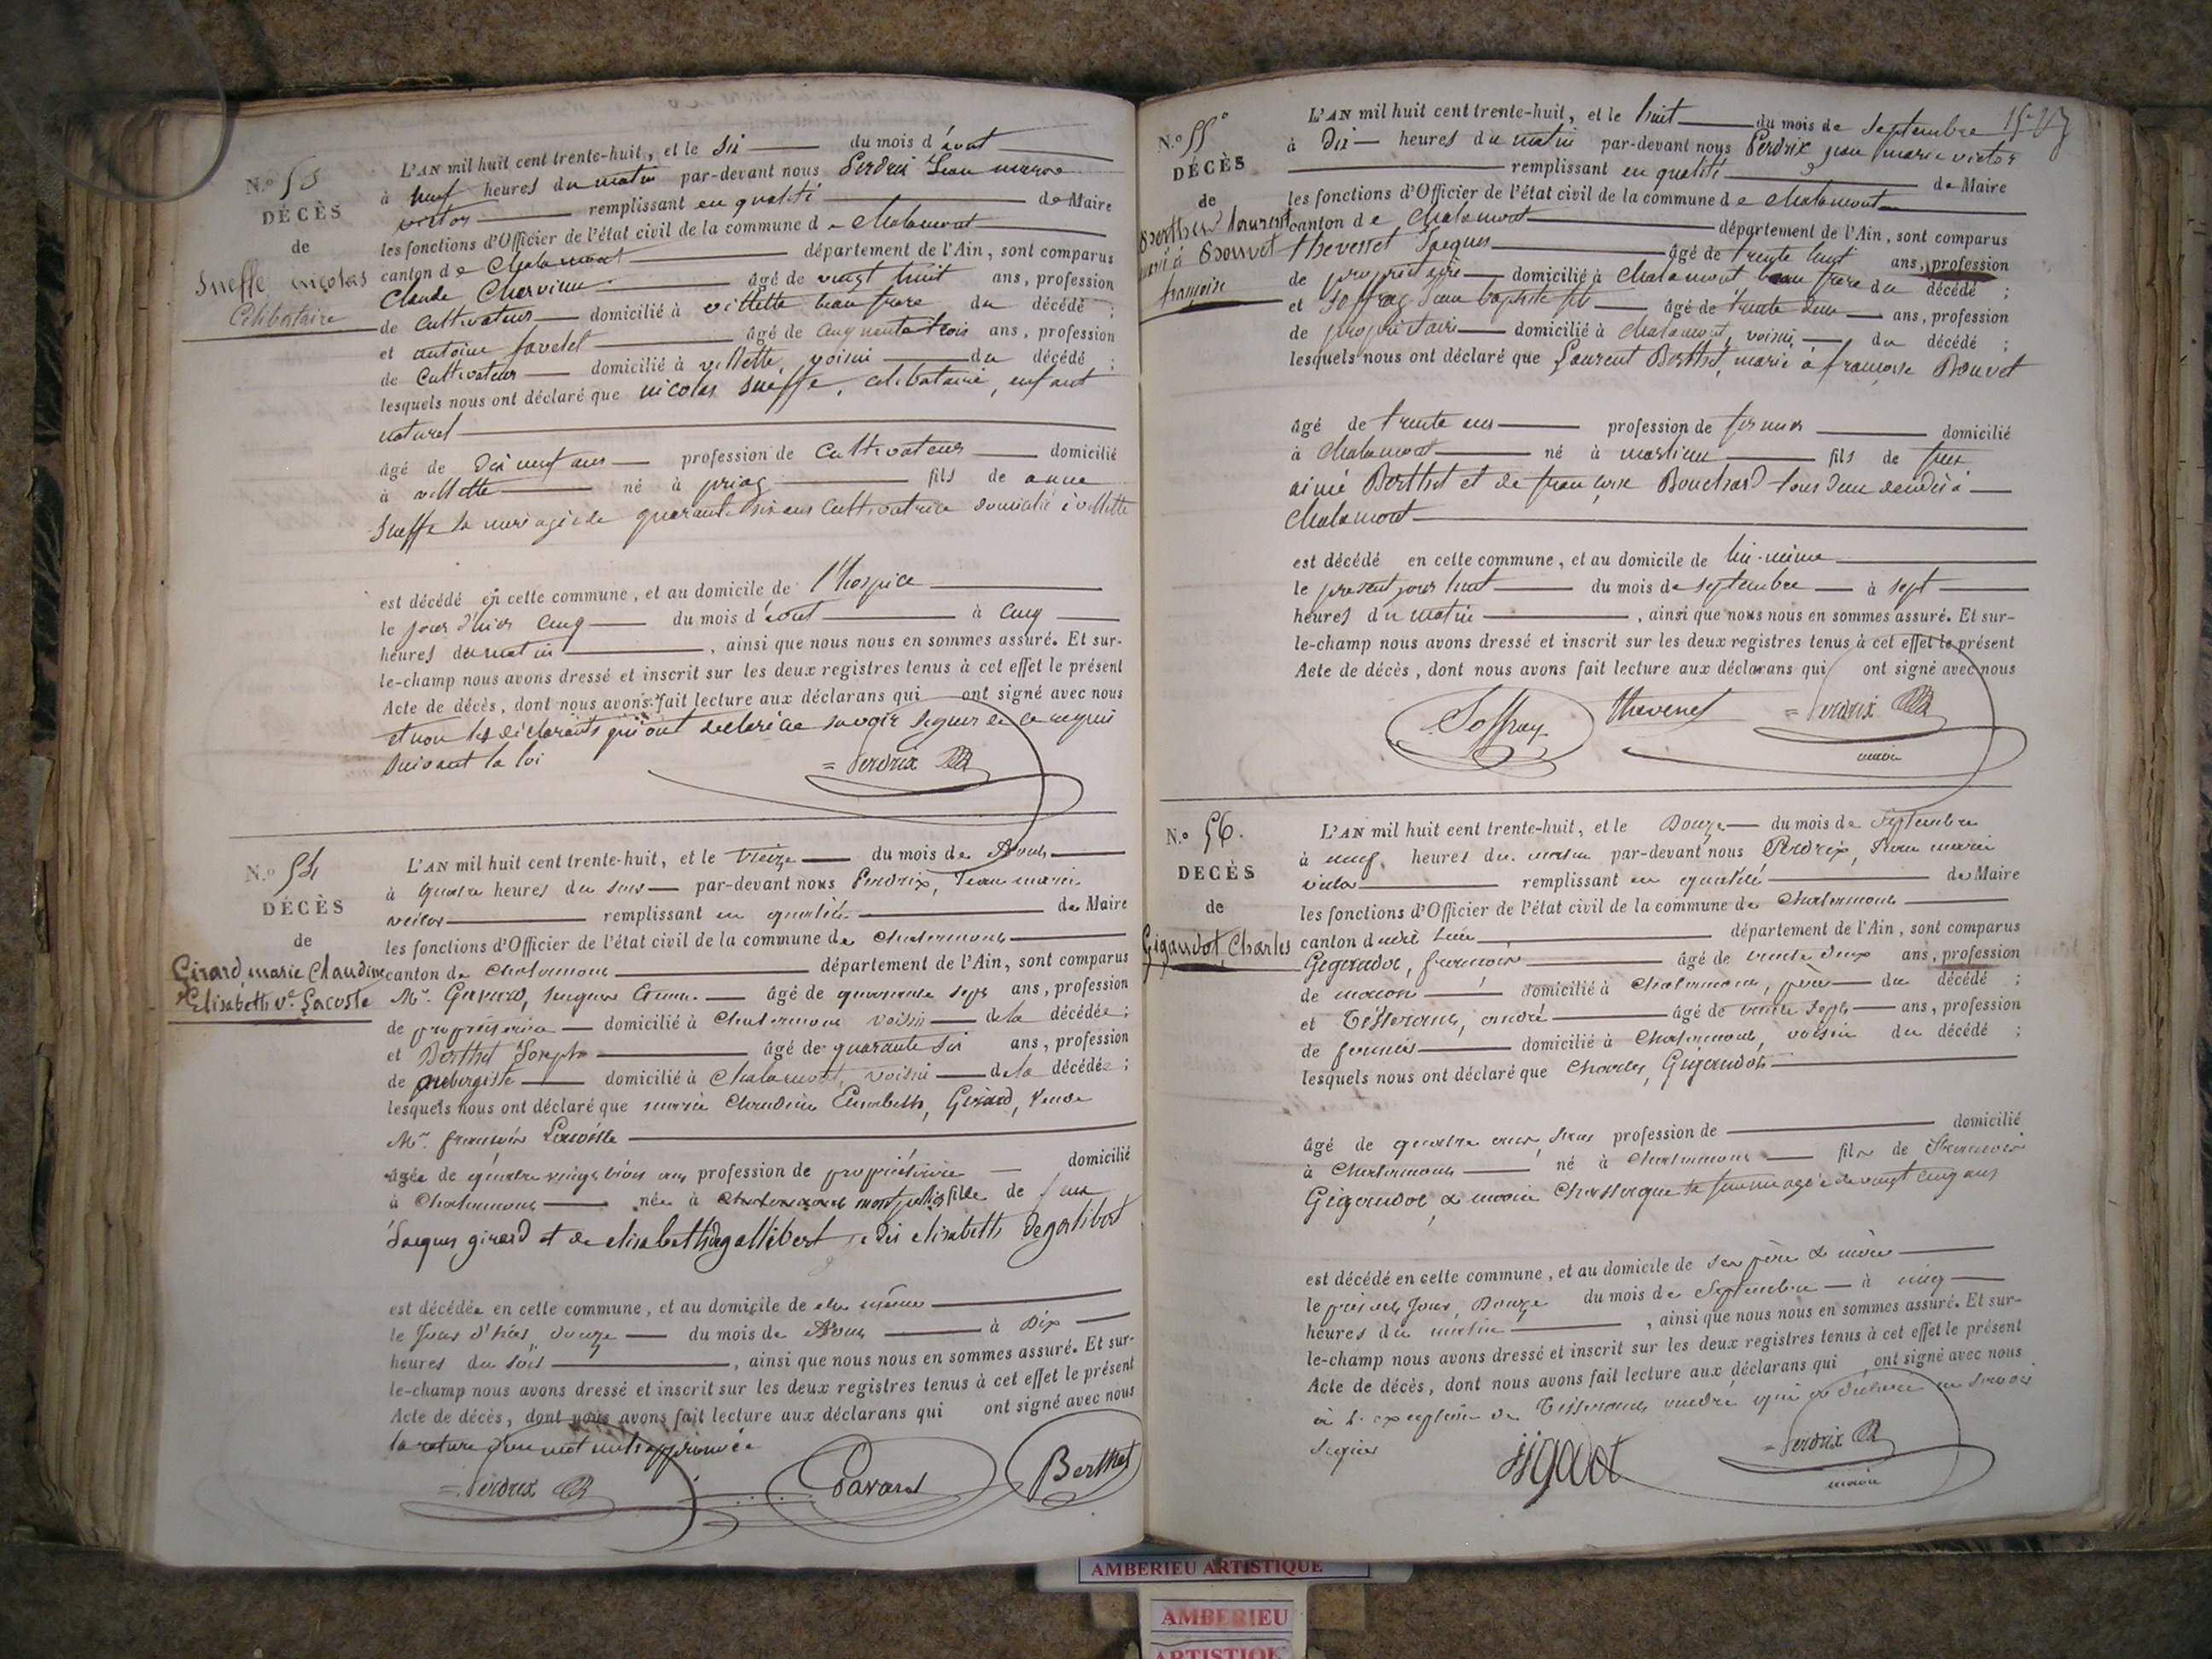 N.o 53
DÉCÈS
de
Sueffe nicolas
Célibataire
L'AN mil huit cent trente-huit, et le Six du mois d'áout
à neuf heures du matin par-devant nous Perdrix Jean marie
victor remplissant en qualité de Maire
les fonctions d'Officier de l'état civil de la commune de Chalamont
canton de Chalamont département de l'Ain, sont comparus
Claude Chervieu âgé de vingt huit ans, profession
de Cultivateur domicilié à villette beau frere du décédé ;
et antoine favelet âgé de Cinquante trois ans, profession
de Cultivateur domicilié à villette, voisin du décédé ;
lesquels nous ont déclaré que nicolas Sueffe, celibataire, enfant
naturel
âgé de Dix neuf ans profession de Cultivateur domicilié
à villette né à priay fils de anne
Sueffe sa mere agée de quarante six ans Cultivatrice domicilié à villette
est décédé en cette commune, et au domicile de l'hospice
le jour d'hier Cinq du mois d'áout à Cinq
heures du matin , ainsi que nous nous en sommes assuré. Et sur-
le-champ nous avons dressé et inscrit sur les deux registres tenus à cet effet le présent
Acte de décès, dont nous avons fait lecture aux déclarans qui ont signé avec nous
et non les déclarants qui ont declaré ne savoir signer de ce requis
Suivant la loi
Perdrix
N.o 54
DÉCÈS
de
Girard, marie Claudine
Elisabeth ve Lacoste
L'AN mil huit cent trente-huit, et le Treize du mois de Aout
à quatre heures du soir par-devant nous Perdrix, Jean marie
victor remplissant en qualité de Maire
les fonctions d'Officier de l'état civil de la commune de Chalamont
canton de Chalamont département de l'Ain, sont comparus
Mr. Gavard, âgé de quarante sept ans, profession
de propriétaire domicilié à Chalamont voisin de la décédée ;
et Berthet Joseph âgé de quarante six ans, profession
de aubergiste domicilié à Chalamont, voisin de la décédée ;
lesquels nous ont déclaré que marie Claudine Elisabeth, Girard, Veuve
Mr. françois Lacoste
âgée de quatre vingt trois ans profession de propriétaire domicilié
à Chalamont née à Chalamont montpellier fille de feux
Jacques girard et de elisabeth degallibert
est décédée en cette commune, et au domicile de elle même
le Jour d'hier, douze du mois de Aout à Dix
heures du soir , ainsi que nous nous en sommes assuré. Et sur-
le-champ nous avons dressé et inscrit sur les deux registres tenus à cet effet le présent
Acte de décès, dont nous avons fait lecture aux déclarans qui ont signé avec nous
la rature d'un mot nul approuvée
Perdrix Gavard Berthet
N.o 55
DÉCÈS
de
Berthet laurent
marié à Bouvet
françoise
L'AN mil huit cent trente-huit, et le huit du mois de Septembre
à Dix heures du matin par-devant nous Perdrix jean marie victor
remplissant en qualité de Maire
les fonctions d'Officier de l'état civil de la commune de Chalamont
canton de Chalamont département de l'Ain, sont comparus
thevenet Jacques âgé de trente huit ans, profession
de propriétaire domicilié à Chalamont beau frere du décédé ;
et Joffray Jean baptiste fils âgé de trente deux ans, profession
de propriétaire domicilié à Chalamont, voisin du décédé ;
lesquels nous ont déclaré que Laurent Berthet, marié à françoise Bouvet
âgé de trente ans profession de fermier domicilié
à Chalamont né à marlieux fils de feux
aimé Berthet et de françoise Bouchard tous deux decedés à
Chalamont
est décédé en cette commune, et au domicile de lui-même
le présent jour huit du mois de septembre à sept
heures du matin , ainsi que nous nous en sommes assuré. Et sur-
le-champ nous avons dressé et inscrit sur les deux registres tenus à cet effet le présent
Acte de décès, dont nous avons fait lecture aux déclarans qui ont signé avec nous
Joffray thevenet Perdrix
maire
N.o 56.
DÉCÈS
de
Gigaudot Charles
L'AN mil huit cent trente-huit, et le Douze du mois de Septembre
à neuf heures du matin par-devant nous Perdrix, Jean marie
victor remplissant en qualité de Maire
les fonctions d'Officier de l'état civil de la commune de Chalamont
canton dudit lieu département de l'Ain, sont comparus
Gigaudot, françois âgé de trente deux ans, profession
de maçon domicilié à Chalamont, père du décédé ;
et Tisserand, andré âgé de trente sept ans, profession
de fermier domicilié à Chalamont, voisin du décédé ;
lesquels nous ont déclaré que Charles, Gigaudot
âgé de quatre ans, sans profession de domicilié
à Chalamont né à Chalamont fils de françois
Gigaudot, & marie sa femme agée de vingt cinq ans
est décédé en cette commune, et au domicile de ses père & mère
le présent Jour, Douze du mois de Septembre à cinq
heures du matin , ainsi que nous nous en sommes assuré. Et sur-
le-champ nous avons dressé et inscrit sur les deux registres tenus à cet effet le présent
Acte de décès, dont nous avons fait lecture aux déclarans qui ont signé avec nous
à l'exception de Tisserand andré qui a déclaré ne savoir
signer
Perdrix
maire
AMBERIEU ARTISTIQUE
AMBERIEU
ARTISTIQUE